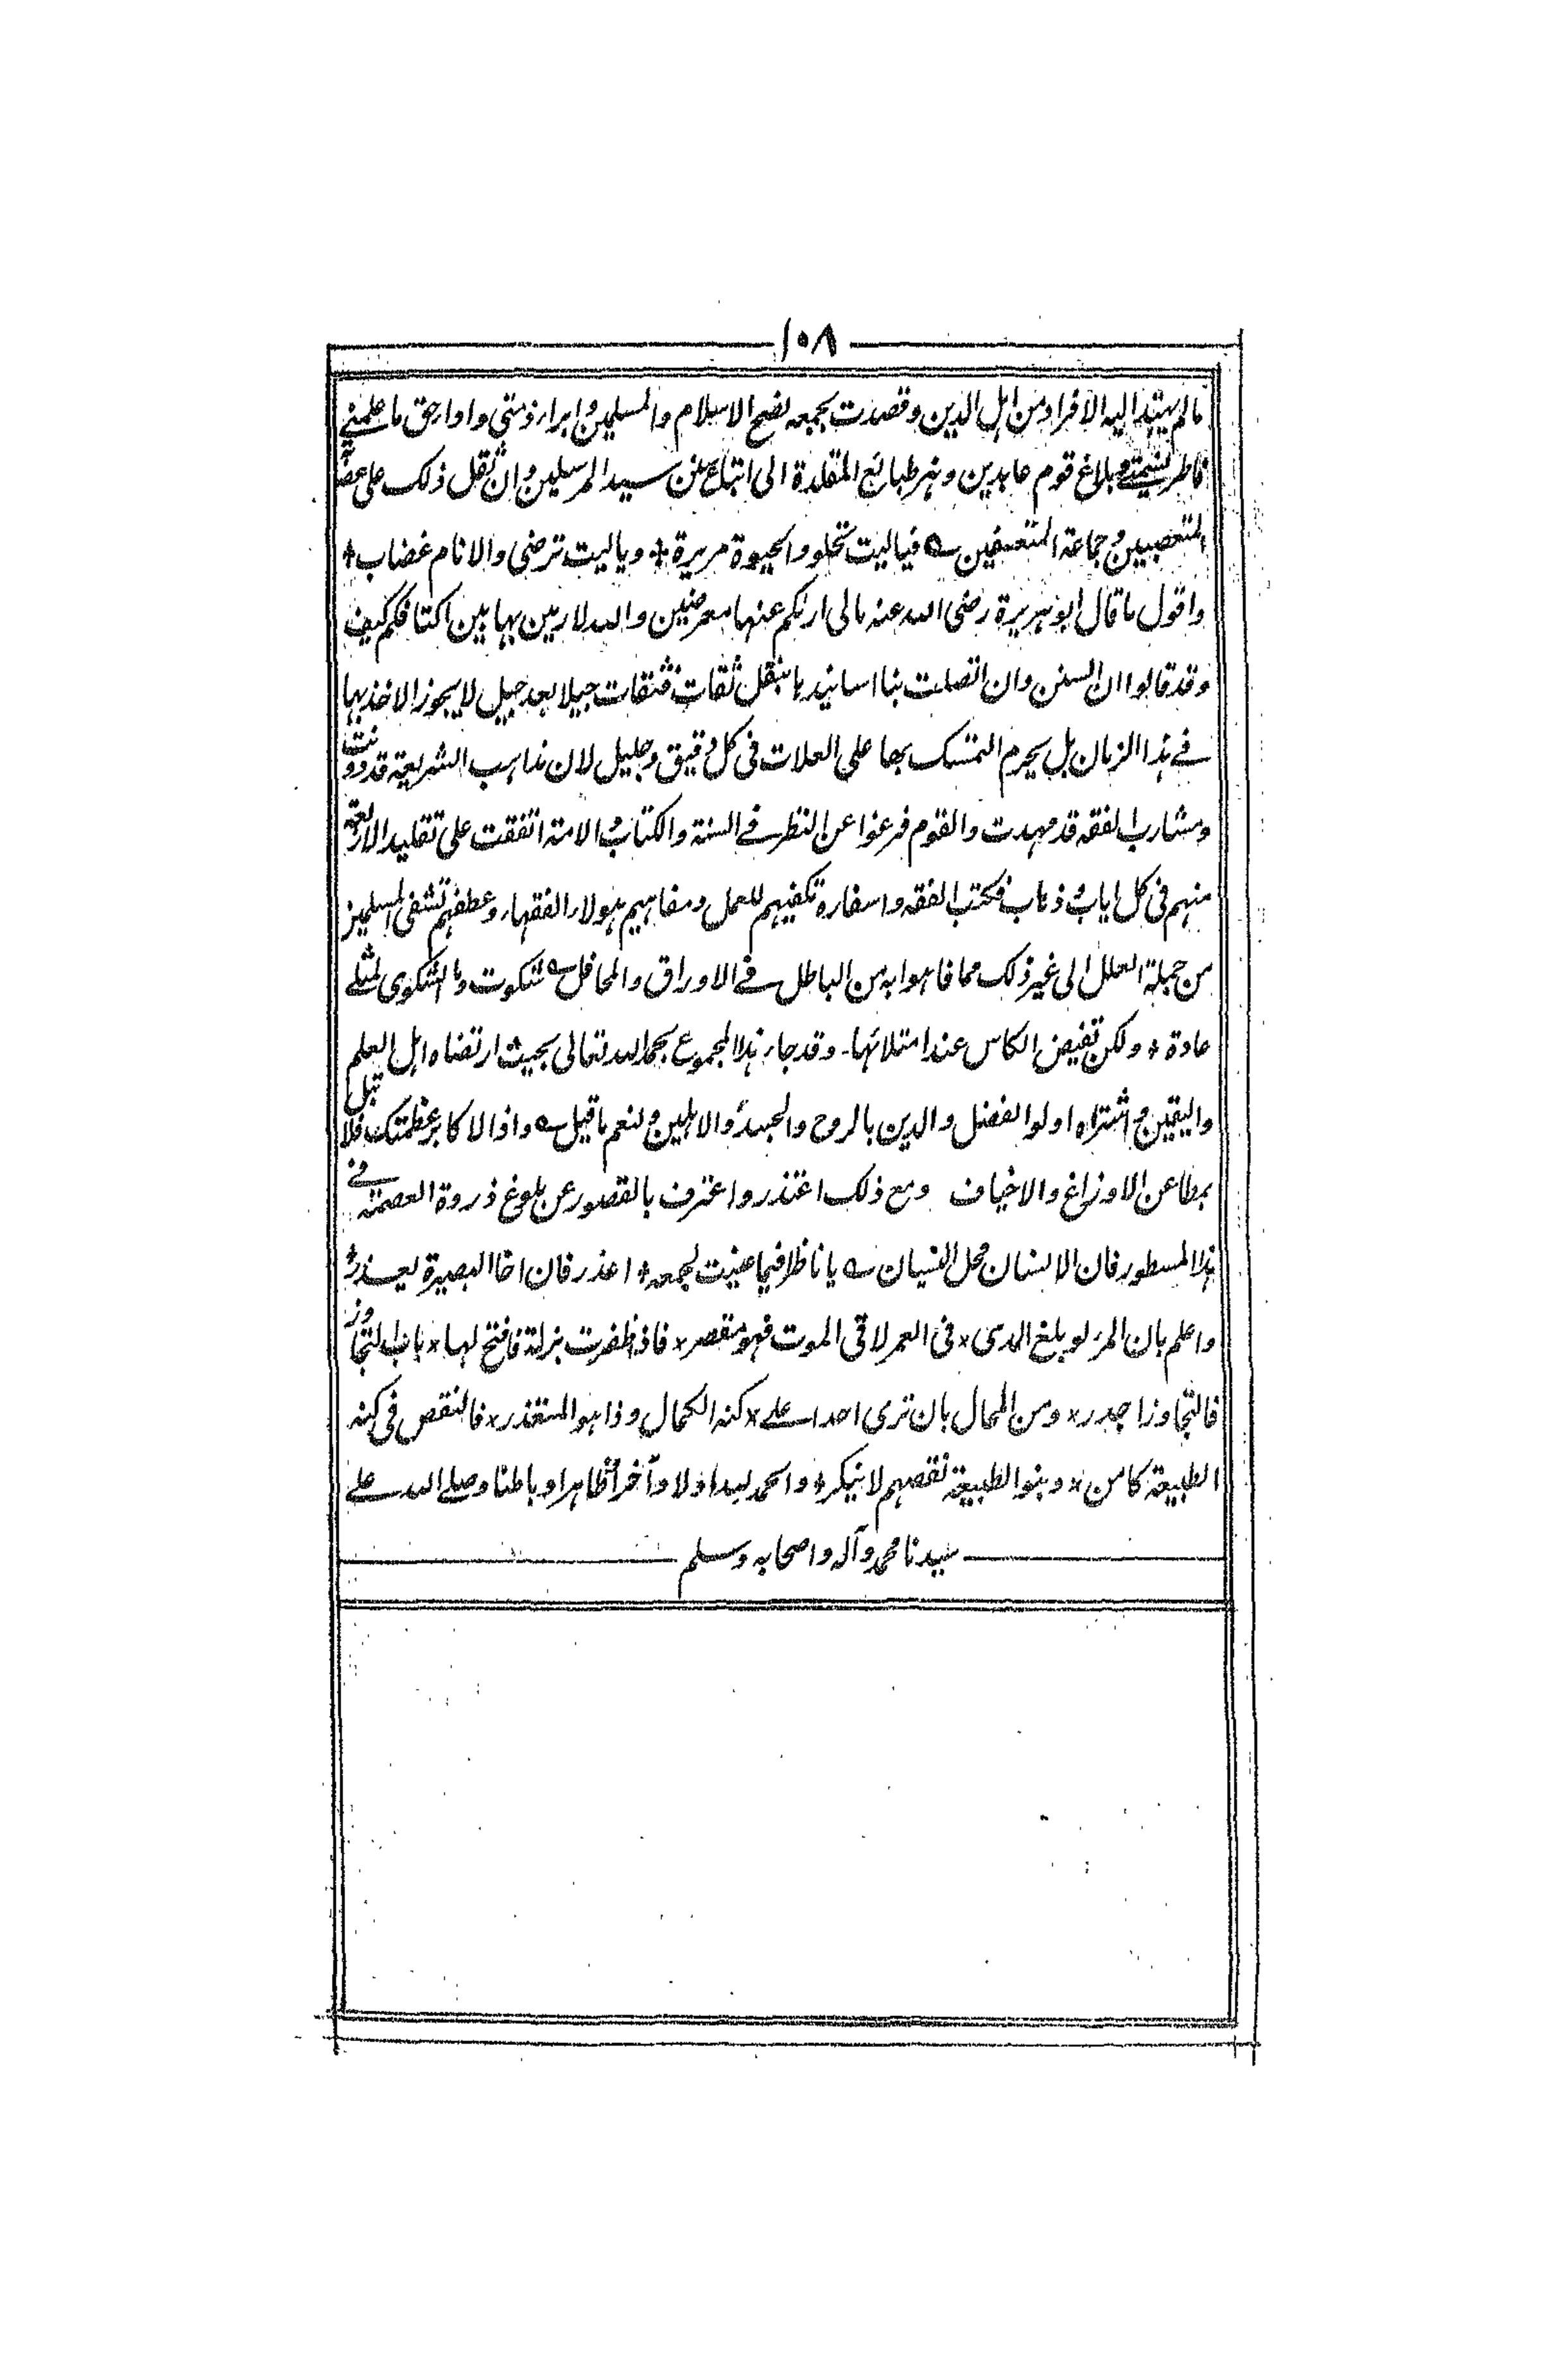 ١٠٨
مالم يهتد اليه الافراد من اهل الدين وقصدت بجمعه نصح الاسلام والمسلمين وابراء ذمتي واداء حق ما علمني
فاطر نسمتي وبلاغ قوم عابدين وهز طبائع المقلدة الى اتباع سنن سيد المرسلين وان ثقل ذلك على عصا
المتعصبين وجماعة المتعسفين ؎ فياليت تحلو والحيوة مريرة ؞ وياليت ترضى والانام غضاب ؞
واقول ما قال ابو هريرة رضى الله عنه مالى اراكم عنها معرضين والله لارمين بها بين اكتافكم كيف
وقد قالوا ان السنن وان اتصلت بنا اسانيدها بنقل ثقات فثقات جيلا بعد جيل لا يجوز الاخذ بها
في هذا الزمان بل يحرم التمسك بها على العلات فى كل دقيق وجليل لان مذاهب الشريعة قد دونت
ومشارب الفقه قد مهدت والقوم فرغوا عن النظر في السنة والكتاب والامة اتفقت على تقليد الاربعة
منهم فى كل اياب وذهاب فكتب الفقه واسفاره تكفيهم للعمل ومفاهيم هولاء الفقهاء وعطفهم تشفى المسلمين
من جملة العلل الى غير ذلك مما فاهوا به من الباطل في الاوراق والمحافل ؎ شكوت وما الشكوى لمثلي
عادة ؞ ولكن تفيض الكاس عند امتلائها۔ وقد جاء هذا المجموع بحمد الله تعالى بحيث ارتضاه اهل العلم
واليقين واشتراه اولو الفضل والدين بالروح والجسد والاهلين ولنعم ما قيل ؎ واذا الاكابر عظمتك فلا تبل
بمطاعن الاوزاغ والاخياف ومع ذلك اعتذر واعترف بالقصور عن بلوغ ذروة العصمة في
هذا المسطور فان الانسان محل النسيان ؎ يا ناظرا فيما عنيت لجمعه ؞ اعذر فان اخا البصيرة يعذر ؞
واعلم بان المرء لو بلغ المدى × فى العمر لاقى الموت فهو مقصر × فاذا ظفرت بزلة فافتح لها × باب التجاوز
فالتجاوز اجدر × ومن المحال بان ترى احدا على × كنه الكمال وذا هو المتعذر × فالنقص فى كنه
الطبيعة كامن × وبنو الطبيعة نقصهم لا ينكر ؞ والحمد لله اولا وآخرا ظاهرا وباطنا وصلى الله على
سيدنا محمد وآله واصحابه وسلم